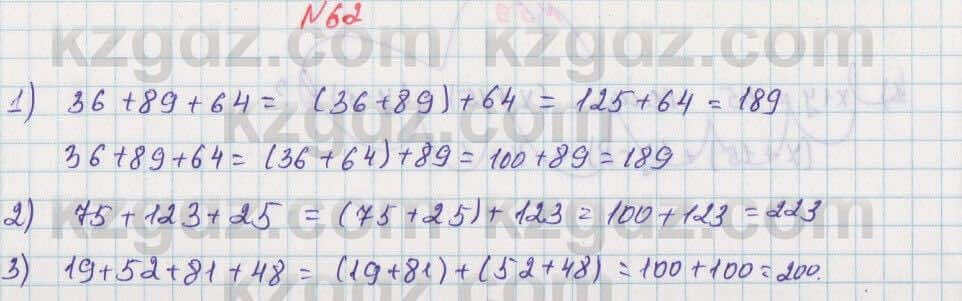 N62
1) 36 + 89 + 64 = (36 + 89) + 64 = 125 + 64 = 189
36 + 89 + 64 = (36 + 64) + 89 = 100 + 89 = 189
2) 75 + 123 + 25 = (75 + 25) + 123 = 100 + 123 = 223
3) 19 + 52 + 81 + 48 = (19 + 81) + (52 + 48) = 100 + 100 = 200.
kzgdz.com
kzgdz.com
kzgdz.com
kzgdz.com